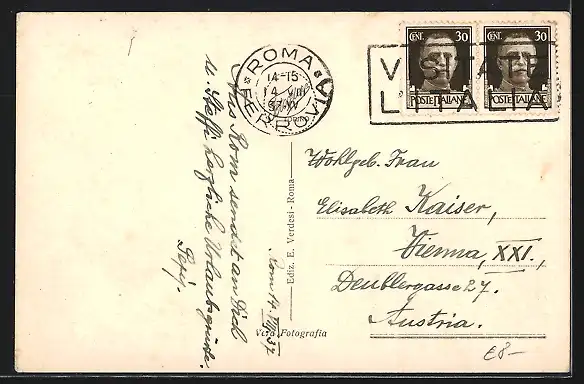 ROMA FERROVIA
14-15
14 VIII
37 XV
VISITATE
L'ITALIA
CENT. 30
POSTE ITALIANE
CENT. 30
POSTE ITALIANE
Aus Rom sendet an Dich
u. Steffi herzliche Urlaubsgrüsse.
Pepi.
Rom 14. VIII. 37.
Ediz. E. Verdesi - Roma
Vera Fotografia
Wohlgeb. Frau
Elisabeth Kaiser,
Vienna, XXI.,
Deublergasse 27.
Austria.
€8-